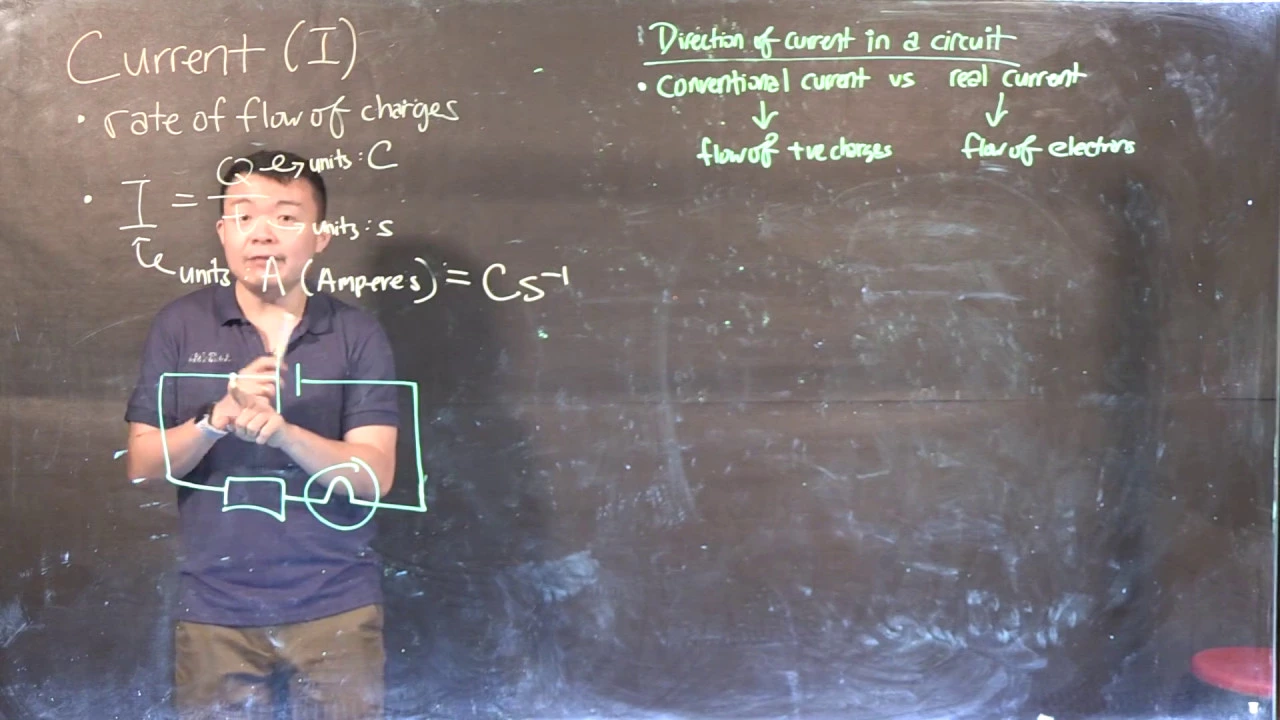 Current (I)
• rate of flow of charges
• I = Q/t
units: C
units: s
units: A (Amperes) = Cs⁻¹
Direction of current in a circuit
• Conventional current vs real current
↓ ↓
flow of +ve charges flow of electrons